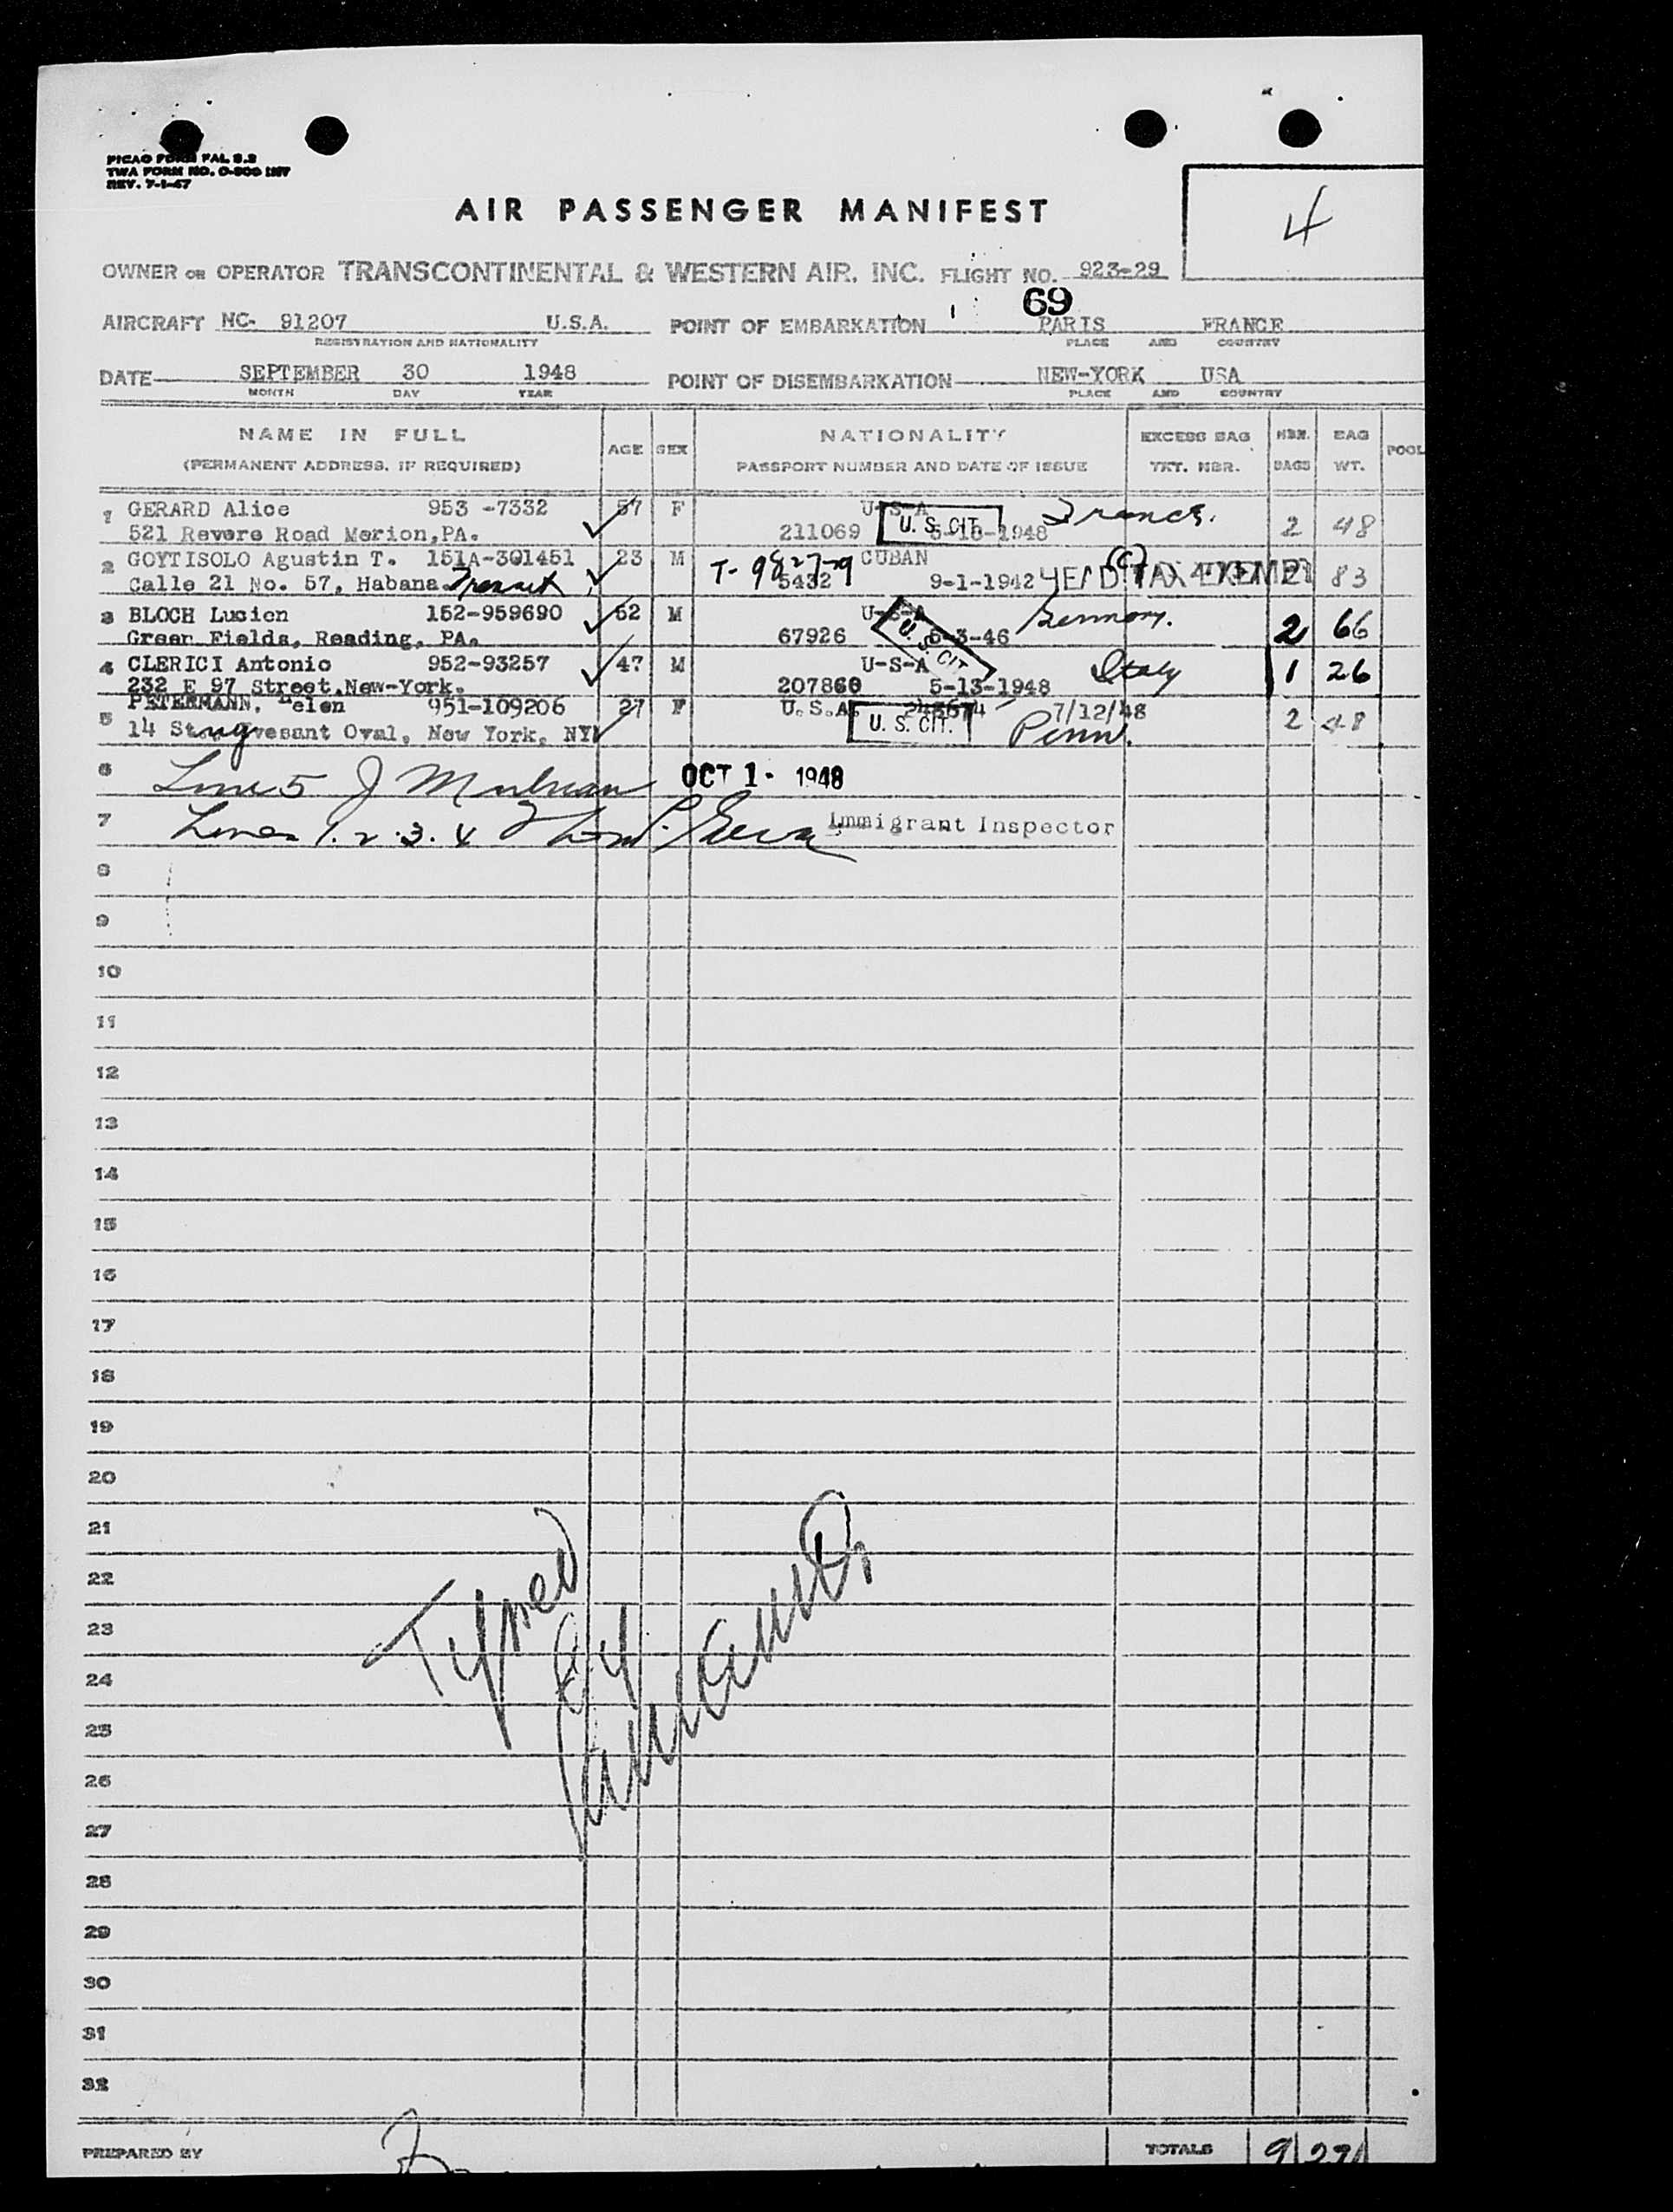 PICAO FORM FAL 2.2
TWA FORM NO. O-806 INT
REV. 7-1-47
4
AIR PASSENGER MANIFEST
OWNER OR OPERATOR TRANSCONTINENTAL & WESTERN AIR, INC. FLIGHT NO. 923-29
69
AIRCRAFT NC- 91207 U.S.A. POINT OF EMBARKATION PARIS FRANCE
REGISTRATION AND NATIONALITY PLACE AND COUNTRY
DATE SEPTEMBER 30 1948 POINT OF DISEMBARKATION NEW-YORK USA
MONTH DAY YEAR PLACE AND COUNTRY
NAME IN FULL AGE SEX NATIONALITY EXCESS BAG NBR. BAG POOL
(PERMANENT ADDRESS, IF REQUIRED) PASSPORT NUMBER AND DATE OF ISSUE TKT. NBR. BAGS WT.
1 GERARD Alice 953 -7332 57 F U-S-A France. 2 48
521 Revere Road Merion,PA. 211069 U. S. CIT. 5-18-1948
2 GOYTISOLO Agustin T. 151A-301451 23 M T- CUBAN (C) 2 83
Calle 21 No. 57, Habana Transit 5432 9-1-1942 HEAD TAX EXEMPT
3 BLOCH Lucien 152-959690 52 M U-S-A Germany. 2 66
Green Fields, Reading, PA. 67926 6-3-46 U. S. CIT.
4 CLERICI Antonio 952-93257 47 M U-S-A Italy 1 26
232 E 97 Street,New-York. 207860 5-13-1948
5 PETERMANN, Helen 951-109206 27 F U.S.A. 7/12/48 2 48
14 Stuyvesant Oval, New York, NY U. S. CIT. Penn.
6 Line 5 J OCT 1- 1948
7 Lines 1. 2. 3. 4 Immigrant Inspector
8
9
10
11
12
13
14
15
16
17
18
19
20
21
22
23
24
25
26
27
28
29
30
31
32
Typed
by
PREPARED BY TOTALS 9 271